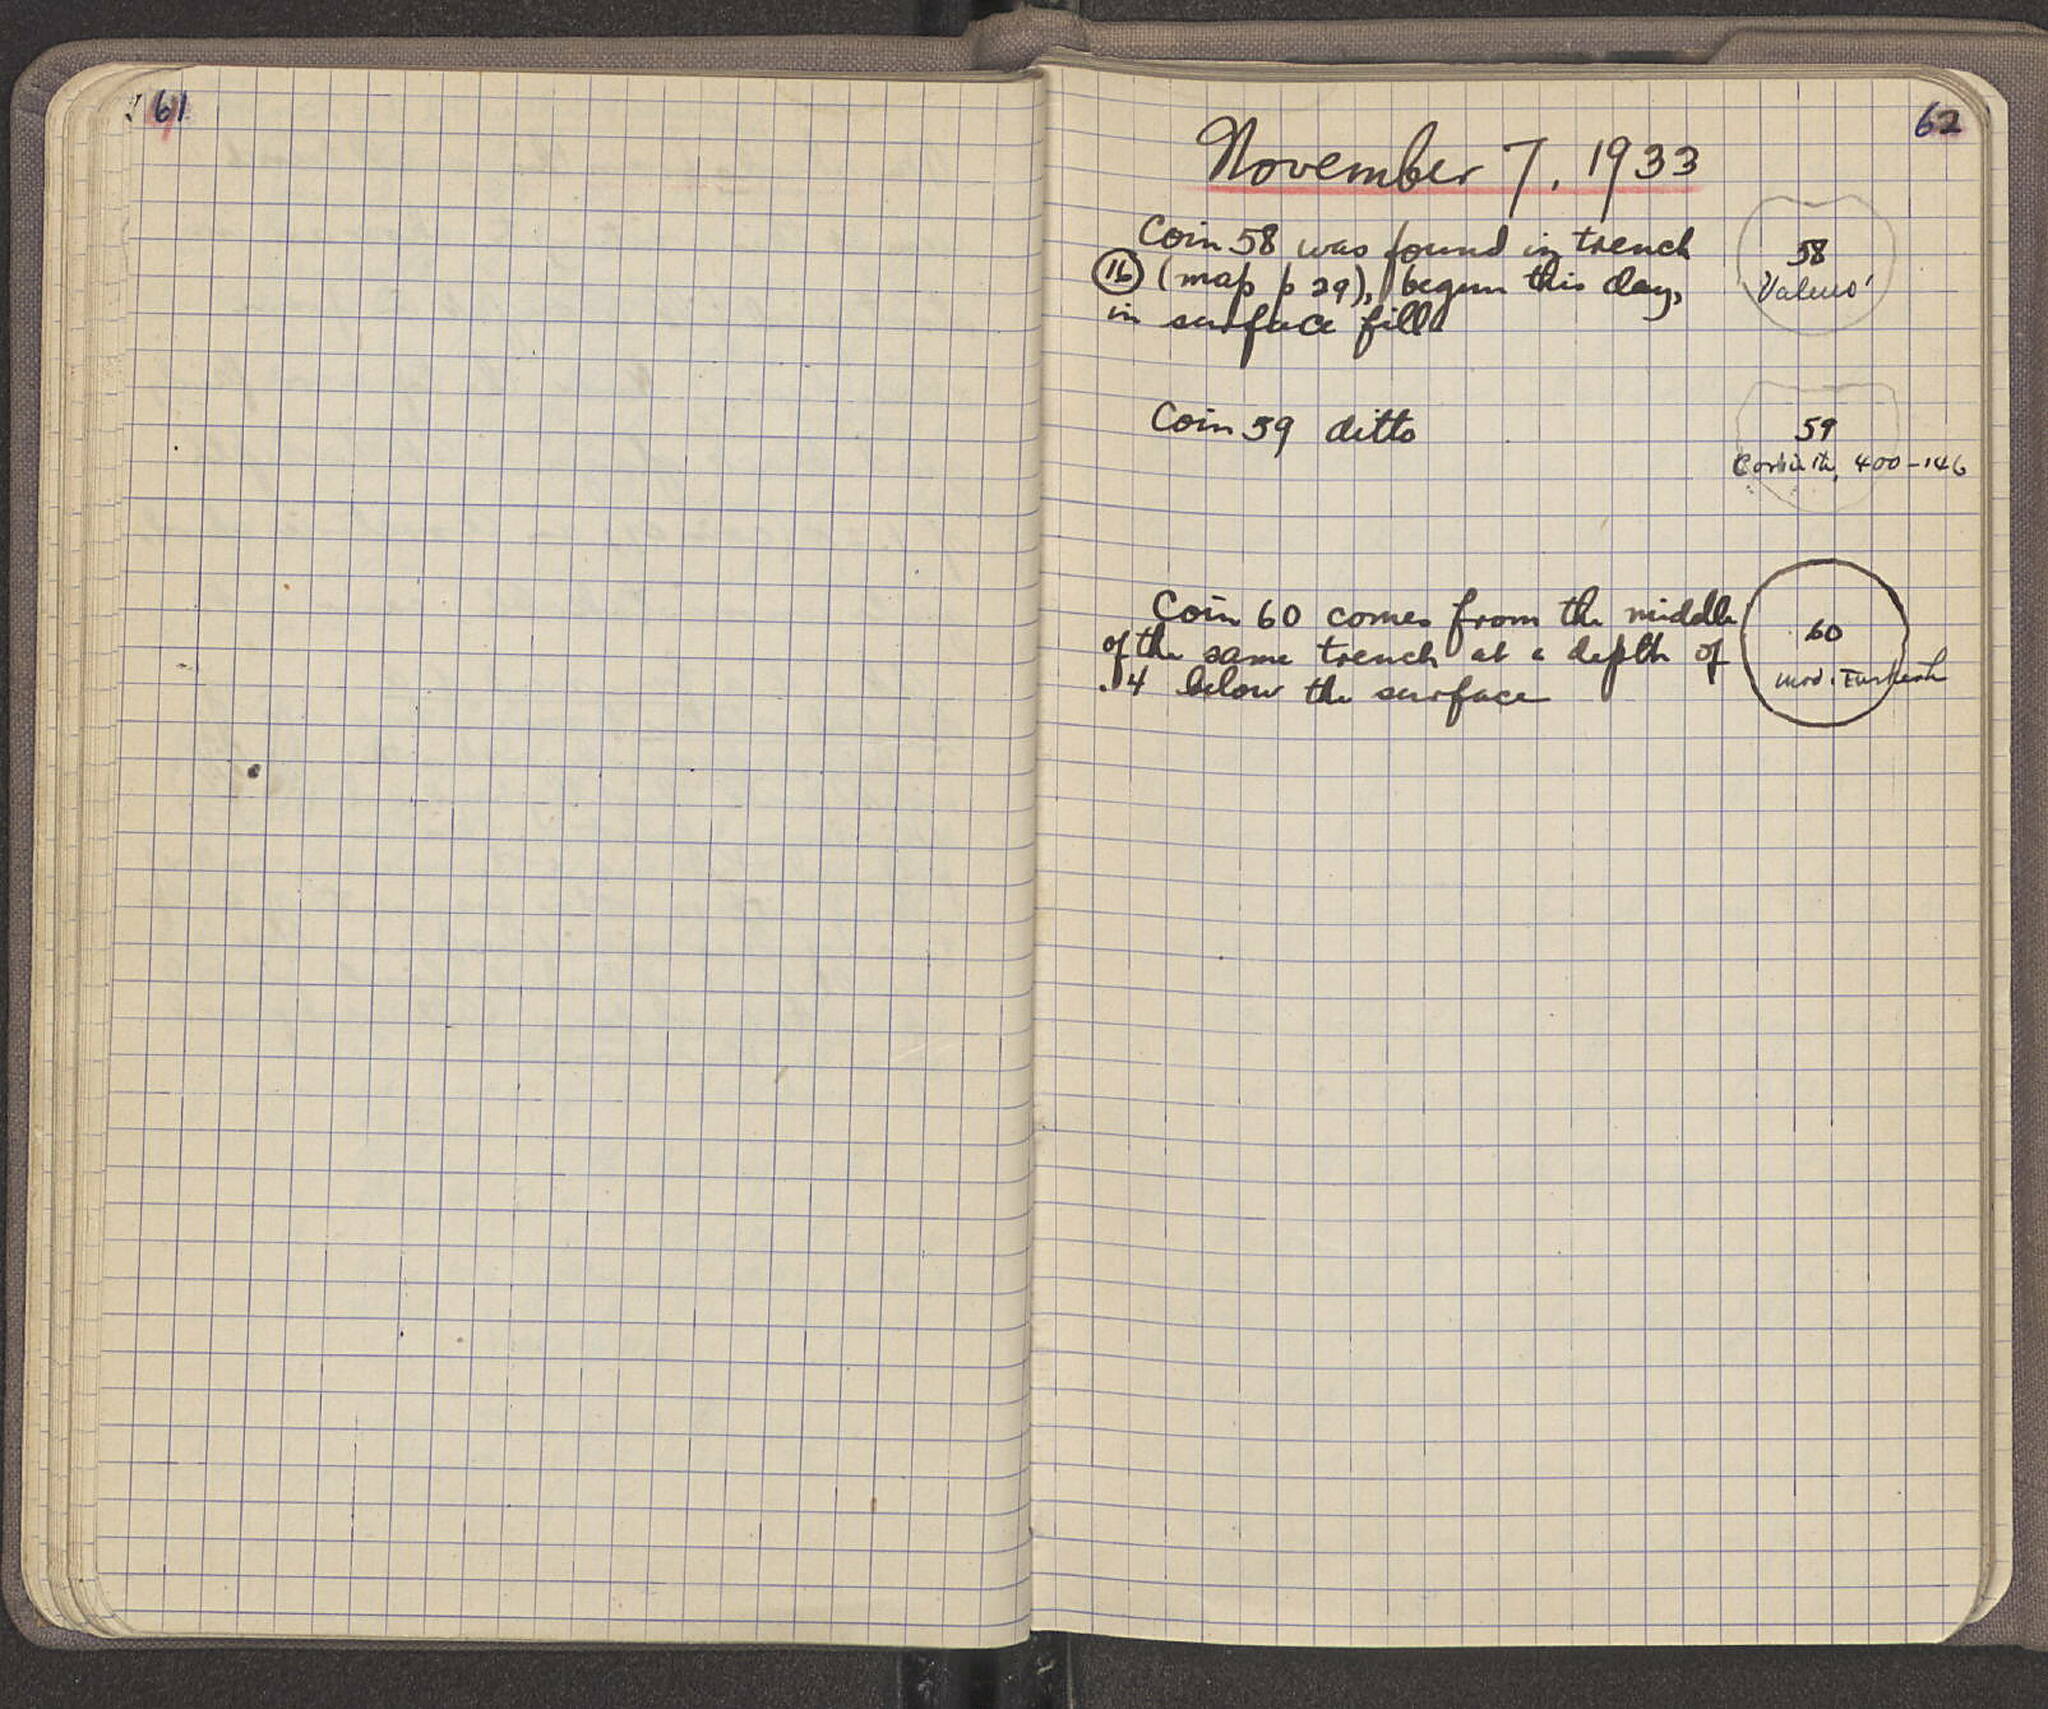 61
62
November 7, 1933
Coin 58 was found in trench
16 (map p 29), begun this day,
in surface fill
58
Valens
Coin 59 ditto
59
Corinth, 400-146
Coin 60 comes from the middle
of the same trench at a depth of
.14 below the surface
60
mod. Turkish